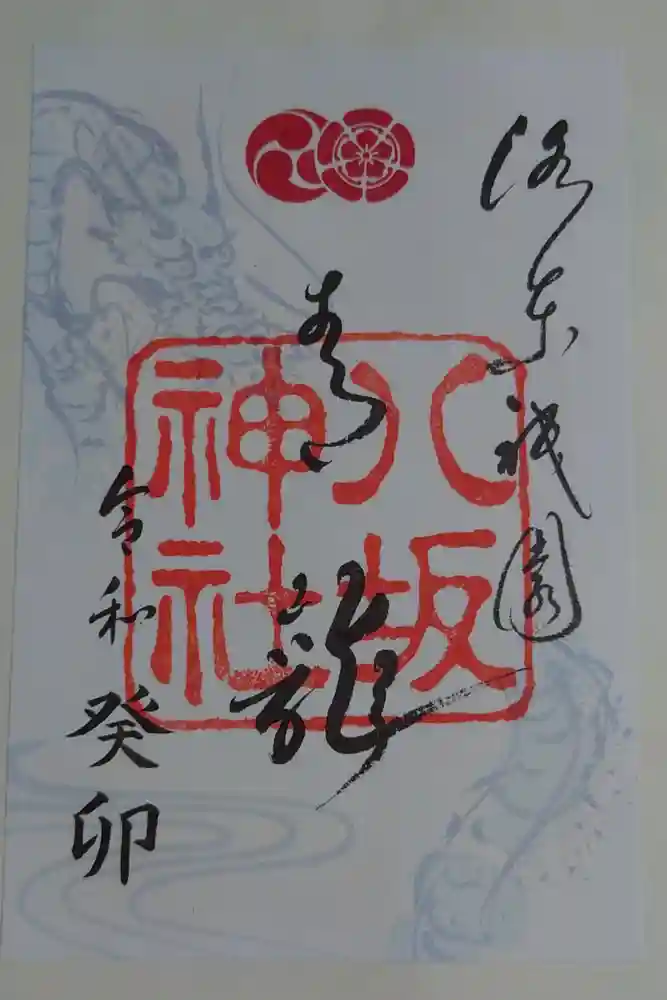 洛東祇園
青龍
八坂
神社
令和癸卯